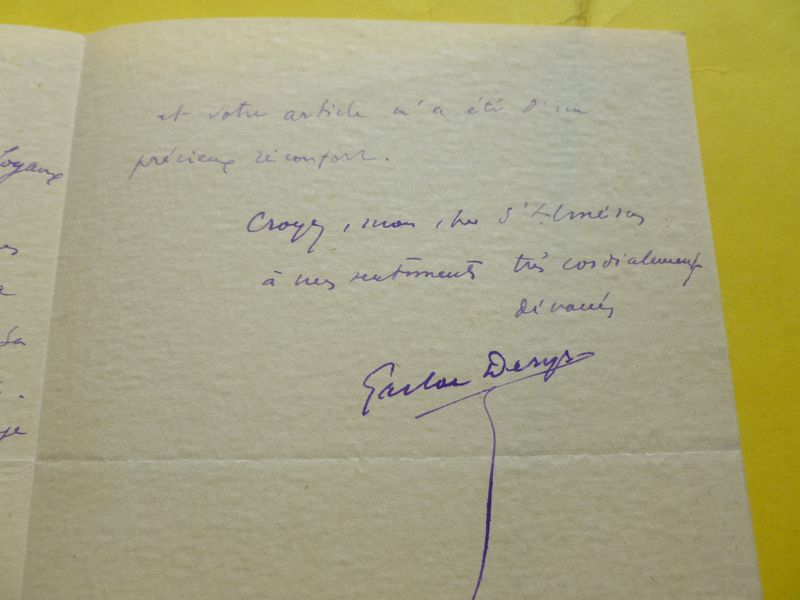 et votre article m'a été d'un
précieux réconfort.
Croyez, mon cher d'Alméras
à mes sentiments très cordialement
dévoués
Gaston Derys